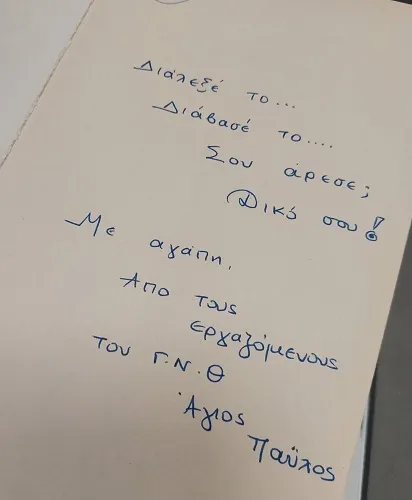 Διάλεξέ το...
Διάβασέ το....
Σου άρεσε;
Δικό σου!
Με αγάπη,
Απο τους
εργαζόμενους
του Γ.Ν.Θ
Άγιος
Παύλος